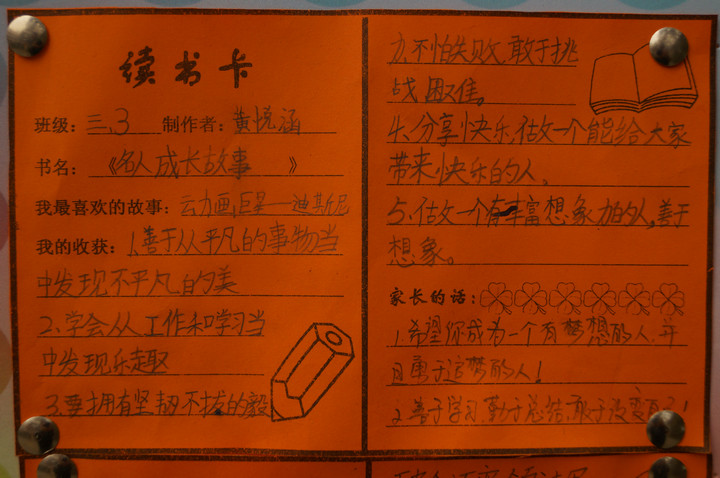 读书卡
班级：三.3 制作者：黄悦涵
书名：《名人成长故事》
我最喜欢的故事：动画巨星—迪斯尼
我的收获：1.善于从平凡的事物当
中发现不平凡的美
2.学会从工作和学习当
中发现乐趣
3.要拥有坚韧不拔的毅
力、不怕失败、敢于挑
战困难。
4、分享快乐，做一个能给大家
带来快乐的人、
5、做一个有丰富想象力的人，善于
想象。
家长的话：
1.希望你成为一个有梦想的人，并
且勇于追梦的人！
2.善于学习，勤于总结，敢于改变自己！